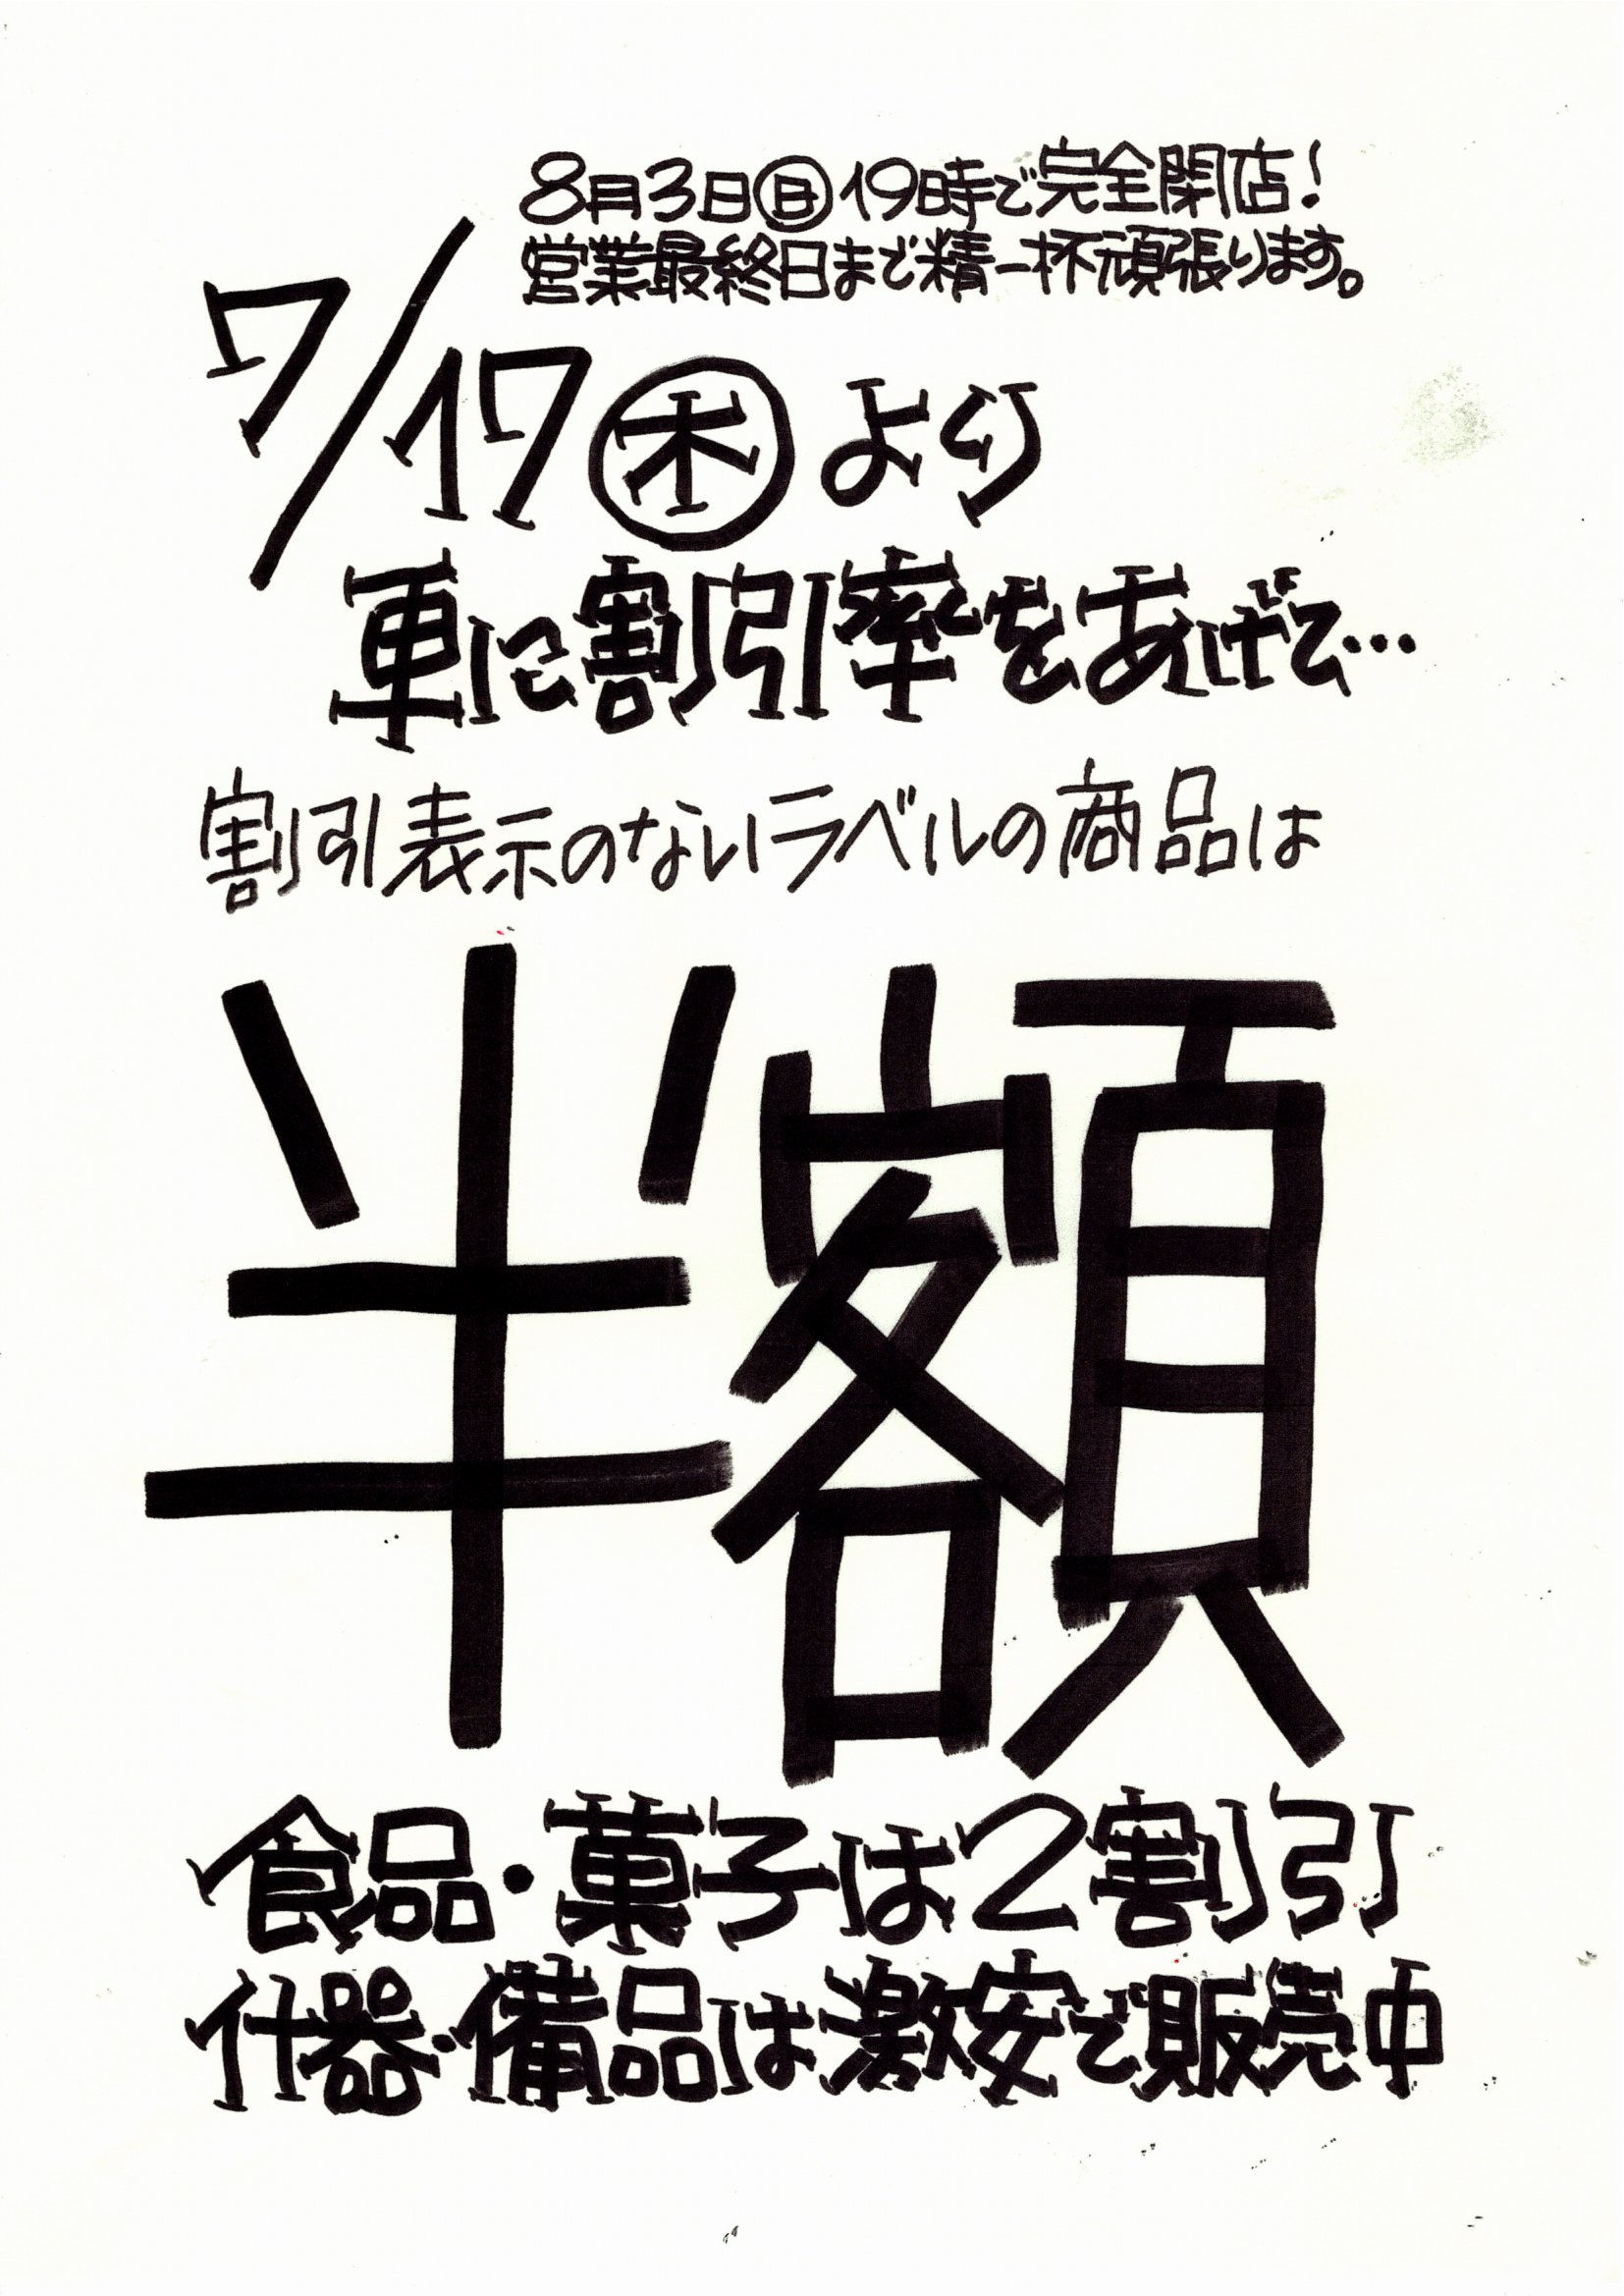 8月3日㊐19時で完全閉店!
営業最終日まで精一杯頑張ります。
7/17㊍より
更に割引率をあげて…
割引表示のないラベルの商品は
半額
食品・菓子は2割引
什器・備品は激安で販売中